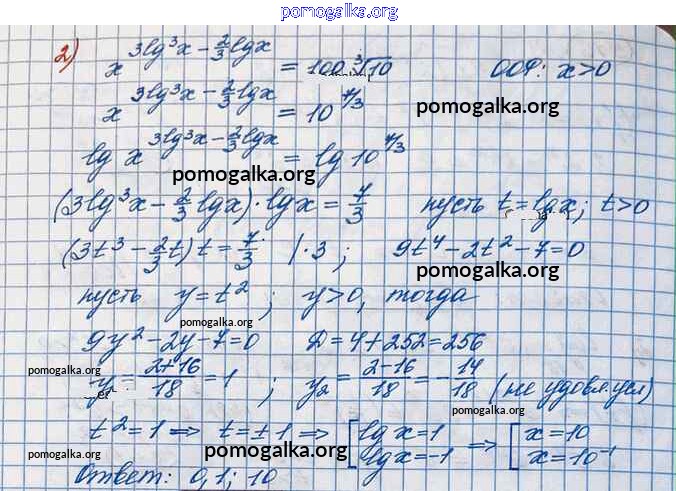 pomogalka.org
2) x^(3lg³x − 2/3 lgx) = 100·³√10 ООФ: x>0
x^(3lg³x − 2/3 lgx) = 10^(7/3) pomogalka.org
lg x^(3lg³x − 2/3 lgx) = lg 10^(7/3)
pomogalka.org
(3lg³x − 2/3 lgx)·lgx = 7/3 пусть t = lgx; t>0
(3t³ − 2/3 t) t = 7/3 /·3 ; 9t⁴ − 2t² − 7 = 0
pomogalka.org
пусть y = t² ; y>0, тогда
pomogalka.org
9y² − 2y − 7 = 0 D = 4 + 252 = 256
pomogalka.org
y₁ = (2+16)/18 = 1 ; y₂ = (2−16)/18 = −14/18 (не удовл. усл)
pomogalka.org
t² = 1 ⟹ t = ± 1 ⟹ [lg x = 1 lg x = −1 ⟹ [x = 10 x = 10⁻¹
pomogalka.org pomogalka.org
Ответ: 0,1; 10